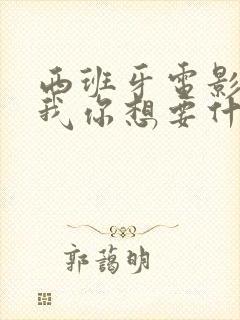 西班牙电影
我你想要什
郭蔼明